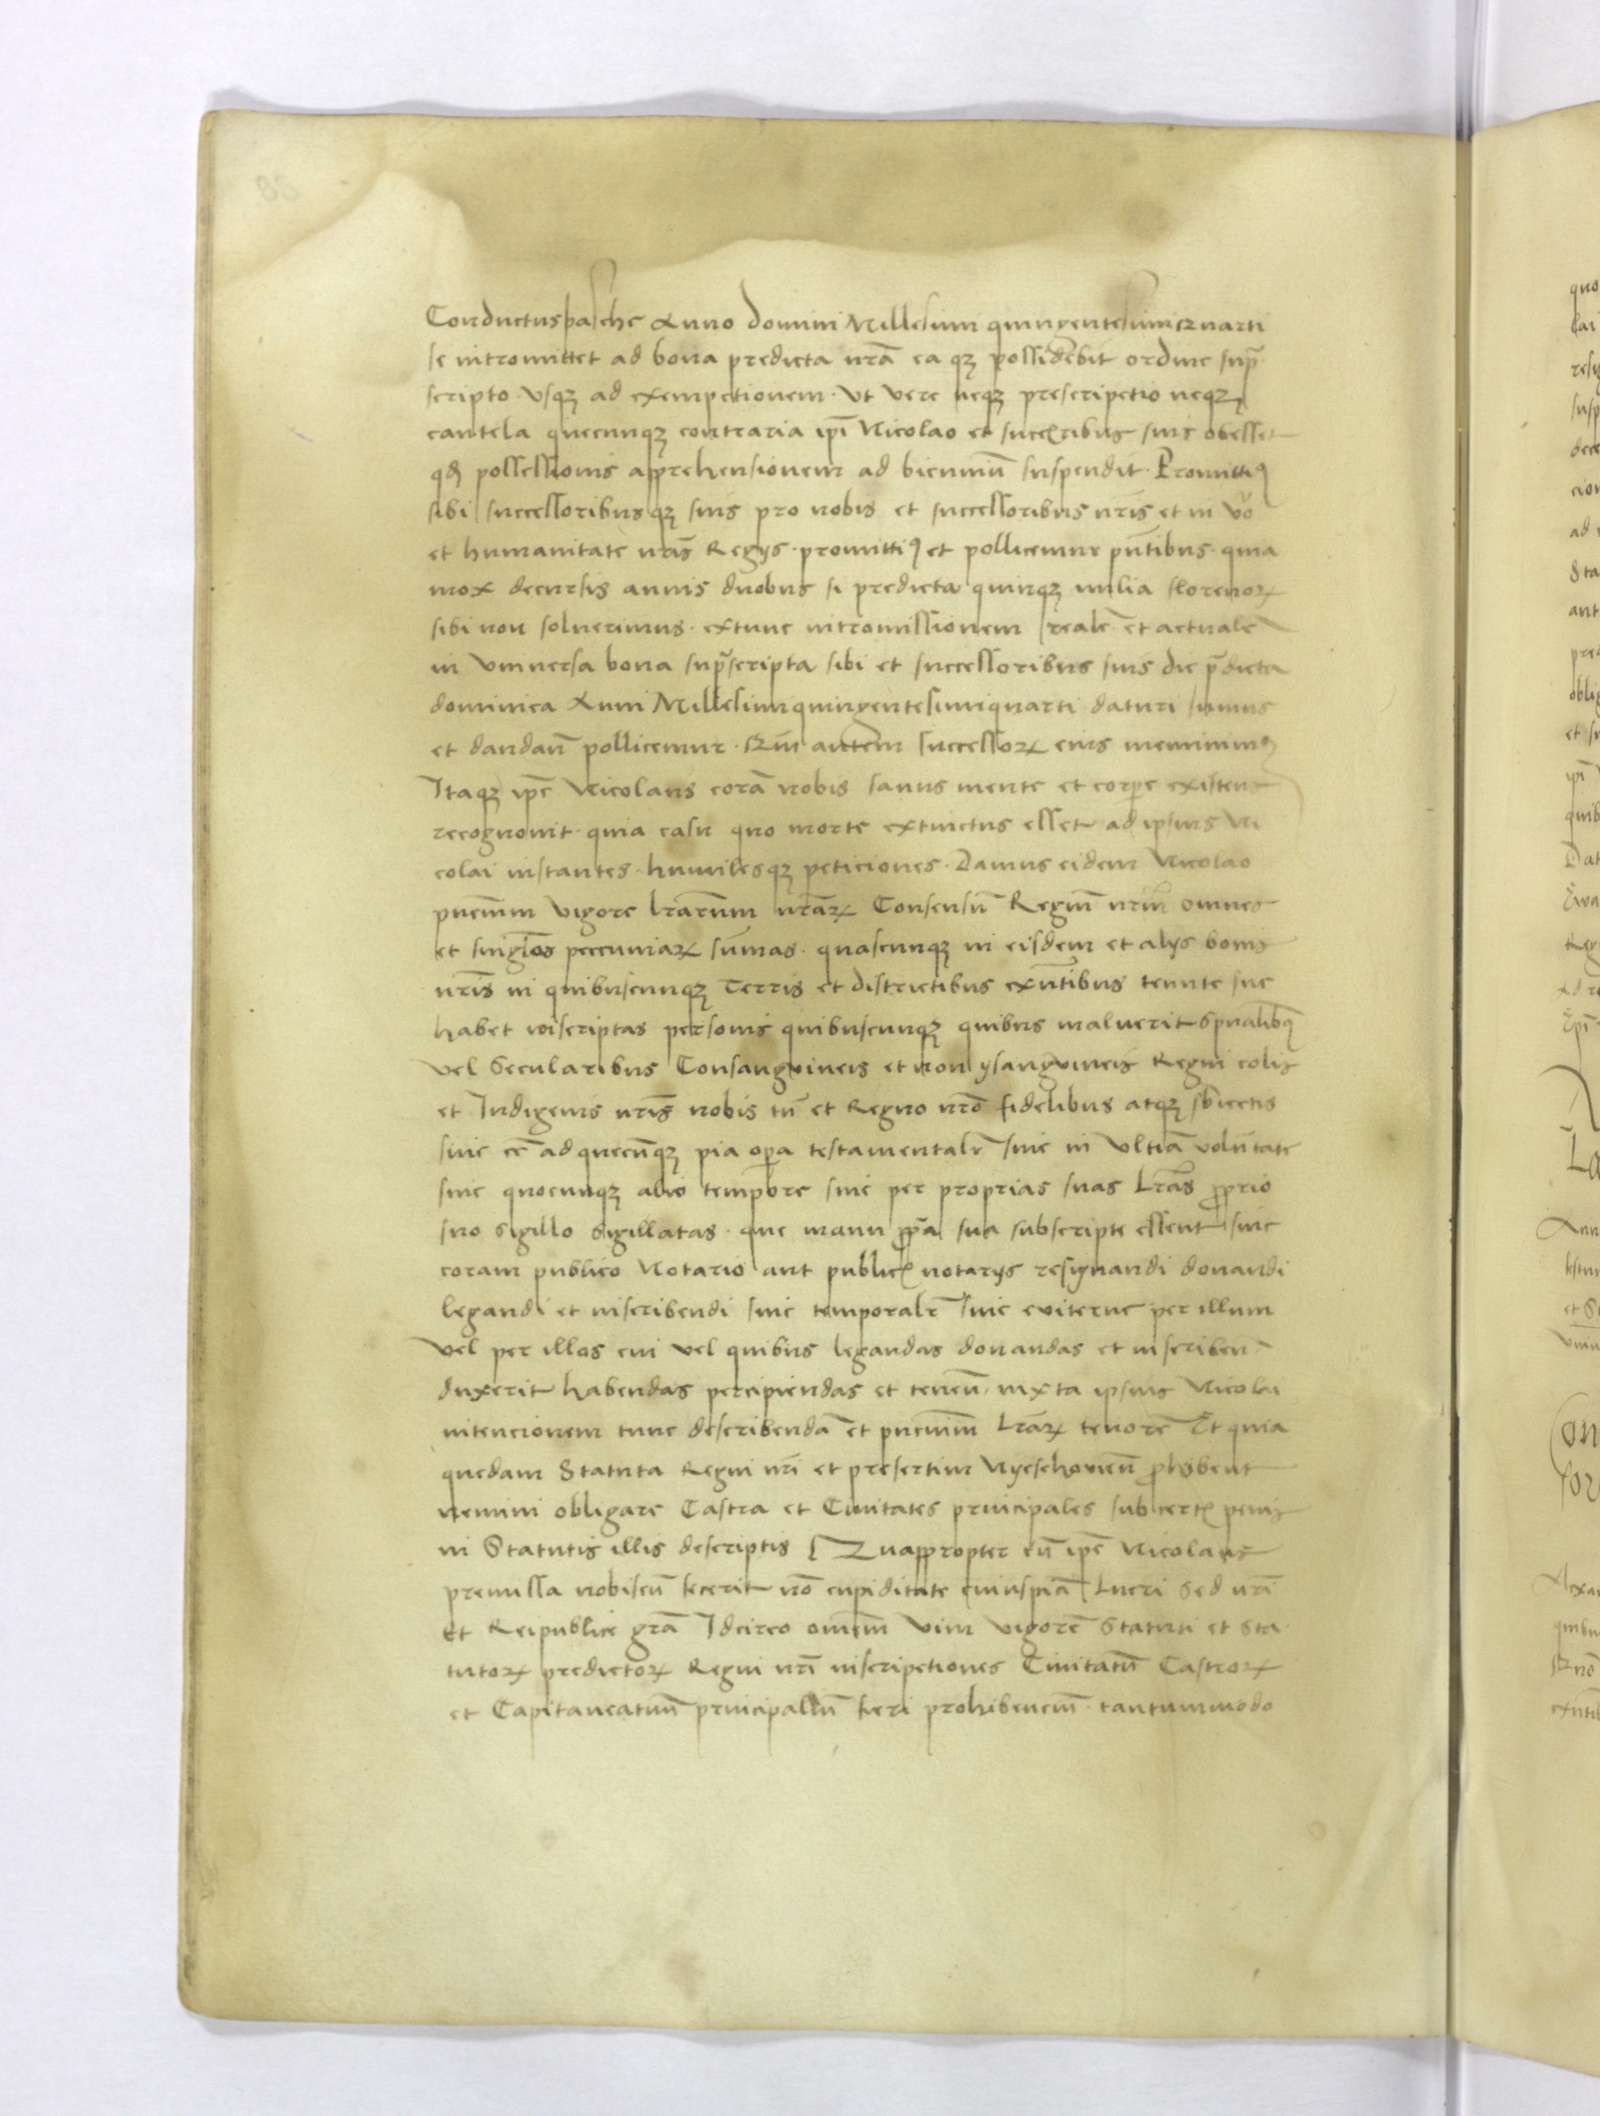 Conductuspasche Anno domini Millesimi quingentesimiquarti
se intromittet ad bona predicta nrã ea qꝫ possidebit ordine supᵃ
scripto Usqꝫ ad exempctionem · Ut vere neqꝫ prescripctio neqꝫ
cautela quecunqꝫ contraria ipi Nicolao et succ̃ribus suis obesset
qđ possessionis apprehensionem ad bienniũ suspendit · Promittiꝯ
sibi successoribusqꝫ suis pro nobis et successoribus nrĩs et in vo
et humanitate nrãs Regijs · promittiꝯ et pollicemur pñtibus · quia
mox decursis annis duobus si predicta quinqꝫ milia florenoꝝ
sibi non soluerimus · extunc intromissionem reale et actuale
in Vniuersa bona supᵃscripta sibi et successoribus suis die pᵃdicta
dominica Anni Millesimiquingentesimiquarti daturi sumus
et dandaũ pollicemur · Qm̃ autem successoꝝ eius meminimꝯ
Itaqꝫ ipe Nicolaus corã nobis sanus mente et corpe existens
recognouit · quia casu quo morte extinctus esset ad ipsius Ni
colai instantes · humilesqꝫ peticiones · Damus eidem Nicolao
pñcium vigore lrarum nrãꝝ Consensũ Regiũ nrũm omnes
et singl̃as pecuniaꝝ sum̃as · quascunqꝫ in eisdem et alijs bonis
nrĩs in quibuscunqꝫ Terris et districtibus exñtibus tenute sue
habet inscriptas personis quibuscunqꝫ quibus maluerit spũalibꝯ
vel Secularibus Consangvineis et non ꝯsangvineis Regni colis
et Indigenis nrĩs nobis tñ et Regno nrõ fidelibus atqꝫ sbiectis
siue cẽ ad quecũqꝫ pia opa testamentalr siue in Ultiã volũtate
siue quocunqꝫ alio tempore siue per proprias suas Lrãs prprio
suo sigillo sigillatas · que manu prpa sua subscripte essent siue
coram publico Notario aut public̃ notarijs resignandi donandi
legandi et inscribendi siue temporalr siue eviterne per illum
Vel per illos cui vel quibus legandas donandas et inscriben
duxerit habendas percipiendas et teneñ iuxta ipsius Nicolai
intencionem tunc describendã et pñcium Lrãꝝ tenorẽ Et quia
quedam Statuta Regni nrĩ et presertim Nyeschovieñ prohibent
nemini obligare Castra et Ciuitates principales sub certꝭ penis
in Statutis illis descriptis Quapropter cũ ipe Nicolaus
premissa nobiscũ fecerit nõ cupiditate cuiuspiã Lucri Sed nrĩ
et Reipublice grã Idcirco omnẽm vim vigorẽ Statuti et Sta
tutoꝝ predictoꝝ Regni nrĩ inscripctiones Ciuitatũ Castroꝝ
et Capitaneatuũ principaliũ fieri prohibenciũ · tantummodo